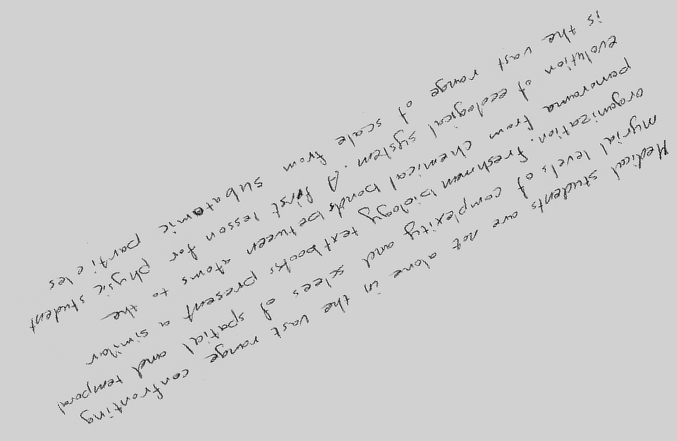 Medical students are not alone in the vast range confronting
myrial levels of complexity and sclees of spatial and temporal
organization. freshman biology textbooks present a similar
panorama from chemical bonds between atoms to the
evolution of ecological system. A first lesson for physic student
is the vast range of scale from subatomic particles